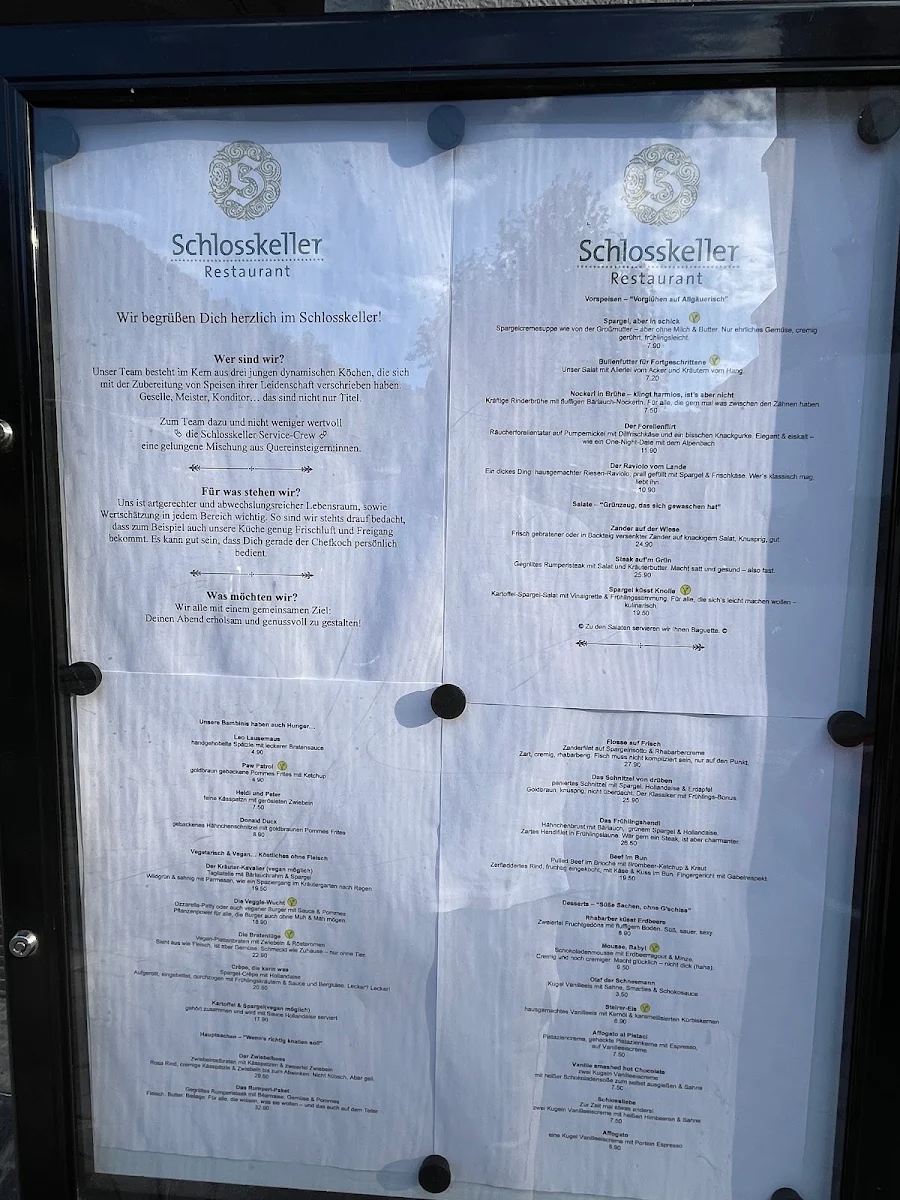 Schlosskeller
Restaurant
Wir begrüßen Dich herzlich im Schlosskeller!
Wer sind wir?
Unser Team besteht im Kern aus drei jungen dynamischen Köchen, die sich
mit der Zubereitung von Speisen ihrer Leidenschaft verschrieben haben.
Geselle, Meister, Konditor… das sind nicht nur Titel.
Zum Team dazu und nicht weniger wertvoll
die Schlosskeller Service-Crew
eine gelungene Mischung aus Quereinsteigern:innen.
Für was stehen wir?
Uns ist artgerechter und abwechslungsreicher Lebensraum, sowie
Wertschätzung in jedem Bereich wichtig. So sind wir stehts drauf bedacht,
dass zum Beispiel auch unsere Küche genug Frischluft und Freigang
bekommt. Es kann gut sein, dass Dich gerade der Chefkoch persönlich
bedient.
Was möchten wir?
Wir alle mit einem gemeinsamen Ziel:
Deinen Abend erholsam und genussvoll zu gestalten!
Schlosskeller
Restaurant
Vorspeisen – "Vorglühen auf Allgäuerisch"
Spargel, aber in schick
Spargelcremesuppe wie von der Großmutter – aber ohne Milch & Butter. Nur ehrliches Gemüse, cremig
gerührt, frühlingsleicht.
7.90
Bullenfutter für Fortgeschrittene
Unser Salat mit Allerlei vom Acker und Kräutern vom Hang.
7.20
Nockerl in Brühe – klingt harmlos, ist's aber nicht
Kräftige Rinderbrühe mit fluffigen Bärlauch-Nockerln. Für alle, die gern mal was zwischen den Zähnen haben.
7.50
Der Forellenflirt
Räucherforellentatar auf Pumpernickel mit Dillfrischkäse und ein bisschen Knackgurke. Elegant & eiskalt –
wie ein One-Night-Date mit dem Alpenbach.
11.90
Der Raviolo vom Lande
Ein dickes Ding: hausgemachter Riesen-Raviolo, prall gefüllt mit Spargel & Frischkäse. Wer's klassisch mag,
liebt ihn.
10.90
Salate – "Grünzeug, das sich gewaschen hat"
Zander auf der Wiese
Frisch gebratener oder in Backteig versenkter Zander auf knackigem Salat. Knusprig, gut
24.90
Steak auf'm Grün
Gegrilltes Rumpersteak mit Salat und Kräuterbutter. Macht satt und gesund – also fast.
25.90
Spargel küsst Knolle
Kartoffel-Spargel-Salat mit Vinaigrette & Frühlingsstimmung. Für alle, die sich's leicht machen wollen –
kulinarisch.
19.50
Zu den Salaten servieren wir Ihnen Baguette.
Unsere Bambinis haben auch Hunger…
Leo Lausemaus
handgehobelte Spätzle mit leckerer Bratensauce
4.90
Paw Patrol
goldbraun gebackene Pommes Frites mit Ketchup
4.90
Heidi und Peter
feine Kässpatzn mit gerösteten Zwiebeln
7.50
Donald Duck
gebackenes Hähnchenschnitzel mit goldbraunen Pommes Frites
8.90
Vegetarisch & Vegan… Köstliches ohne Fleisch
Der Kräuter-Kavalier (vegan möglich)
Tagliatelle mit Bärlauchrahm & Spargel
Wildgrün & sahnig mit Parmesan, wie ein Spaziergang im Kräutergarten nach Regen.
19.50
Die Veggie-Wucht
Ozzarella-Patty oder auch veganer Burger mit Sauce & Pommes
Pflanzenpower für alle, die Burger auch ohne Muh & Mäh mögen.
18.90
Die Bratenlüge
Vegan-Pfefferbraten mit Zwiebeln & Röstaromen
Sieht aus wie Fleisch, ist aber Gemüse. Schmeckt wie Zuhause – nur ohne Tier.
22.90
Crêpe, die kann was
Spargel-Crêpe mit Hollandaise
Aufgerollt, eingebettet, durchzogen mit Frühlingskräutern & Sauce und Bergkäse. Lecker? Lecker!
20.60
Kartoffel & Spargel(vegan möglich)
gehört zusammen und wird mit Sauce Hollandaise serviert
17.90
Hauptsachen – "Wenn's richtig knallen soll"
Der Zwiebelboss
Zwiebelrostbraten mit Kässpatzen & zweierlei Zwiebeln
Rosa Rind, cremige Kässpatzen & Zwiebeln bis zum Abwinken. Nicht hübsch. Aber geil.
29.60
Das Rumperl-Paket
Gegrilltes Rumpersteak mit Béarnaise, Gemüse & Pommes
Fleisch. Butter. Beilage. Für alle, die wissen, was sie wollen – und das auch auf dem Teller
32.90
Flosse auf Frisch
Zanderfilet auf Spargelrisotto & Rhabarbercreme
Zart, cremig, rhabarberig. Fisch muss nicht kompliziert sein, nur auf den Punkt.
27.90
Das Schnitzel von drüben
paniertes Schnitzel mit Spargel, Hollandaise & Erdäpfel
Goldbraun, knusprig, nicht überdacht. Der Klassiker mit Frühlings-Bonus.
25.90
Das Frühlingshendl
Hähnchenbrust mit Bärlauch, grünem Spargel & Hollandaise
Zartes Hendlfilet in Frühlingslaune. Wär gern ein Steak, ist aber charmanter.
26.50
Beef im Bun
Pulled Beef im Brioche mit Brombeer-Ketchup & Kraut
Zerfleddertes Rind, fruchtig eingekocht, mit Käse & Kuss im Bun. Fingergericht mit Gabelrespekt.
19.50
Desserts – "Süße Sachen, ohne G'schiss"
Rhabarber küsst Erdbeere
Zweierlei Fruchtgedöns mit fluffigem Boden. Süß, sauer, sexy.
8.90
Mousse, Baby!
Schokoladenmousse mit Erdbeerragout & Minze.
Cremig und noch cremiger. Macht glücklich – nicht dick (haha).
9.50
Olaf der Schneemann
Kugel Vanilleeis mit Sahne, Smarties & Schokosauce
3.50
Steirer-Eis
hausgemachtes Vanilleeis mit Kernöl & karamellisierten Kürbiskernen
6.90
Affogato al Pistaci
Pistaziencreme, gehackte Pistazienkerne mit Espresso,
auf Vanilleeiscreme
7.50
Vanille smashed hot Chocolate
zwei Kugeln Vanilleeiscreme
mit heißer Schokoladensoße zum selbst ausgießen & Sahne
7.50
Schlossliebe
Zur Zeit mal etwas anders!
zwei Kugeln Vanilleeiscreme mit heißen Himbeeren & Sahne
7.50
Affogato
eine Kugel Vanilleeiscreme mit Portein Espresso
5.90